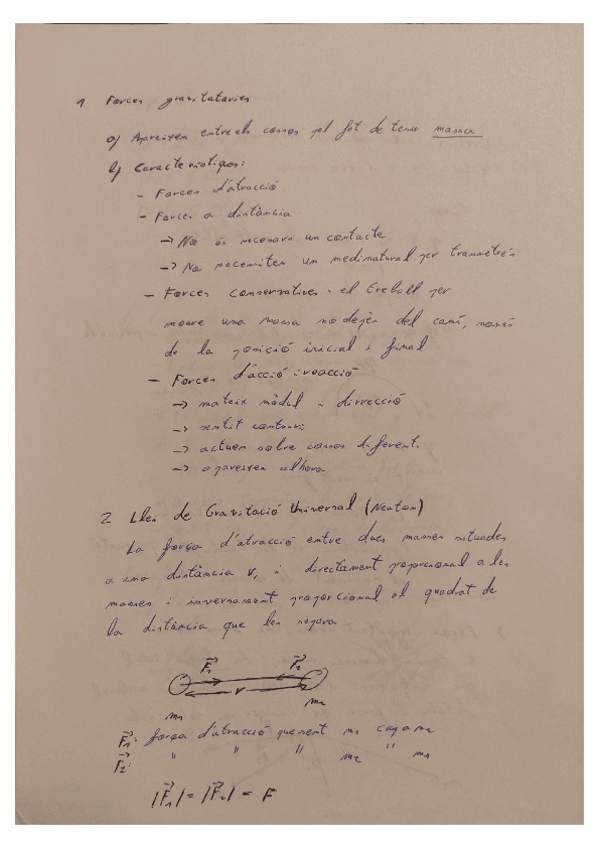 1 Forces gravitatories
a) Apareixen entre els cossos pel fet de tenir massa
b) Característiques:
- Forces d'atracció
- Forces a distància
→ No és necesari un contacte
→ No necessiten un medi natural per transmetre's
- Forces conservatives: el treball per
moure una massa no depèn del camí, només
de la posició inicial i final
- Forces d'acció i reacció
→ mateix mòdul i direcció
→ sentit contrari
→ actuen sobre cossos diferents
→ apareixen alhora
2 Llei de Gravitació Universal (Newton)
La força d'atracció entre dues masses situades
a una distància r, i directament proporcional a les
masses i inversament proporcional al quadrat de
la distància que les separa
F₁ F₂
r
m₁ m₂
F₁: força d'atracció que sent m₁ cap a m₂
F₂: " " " m₂ " m₁
|F₁| = |F₂| = F